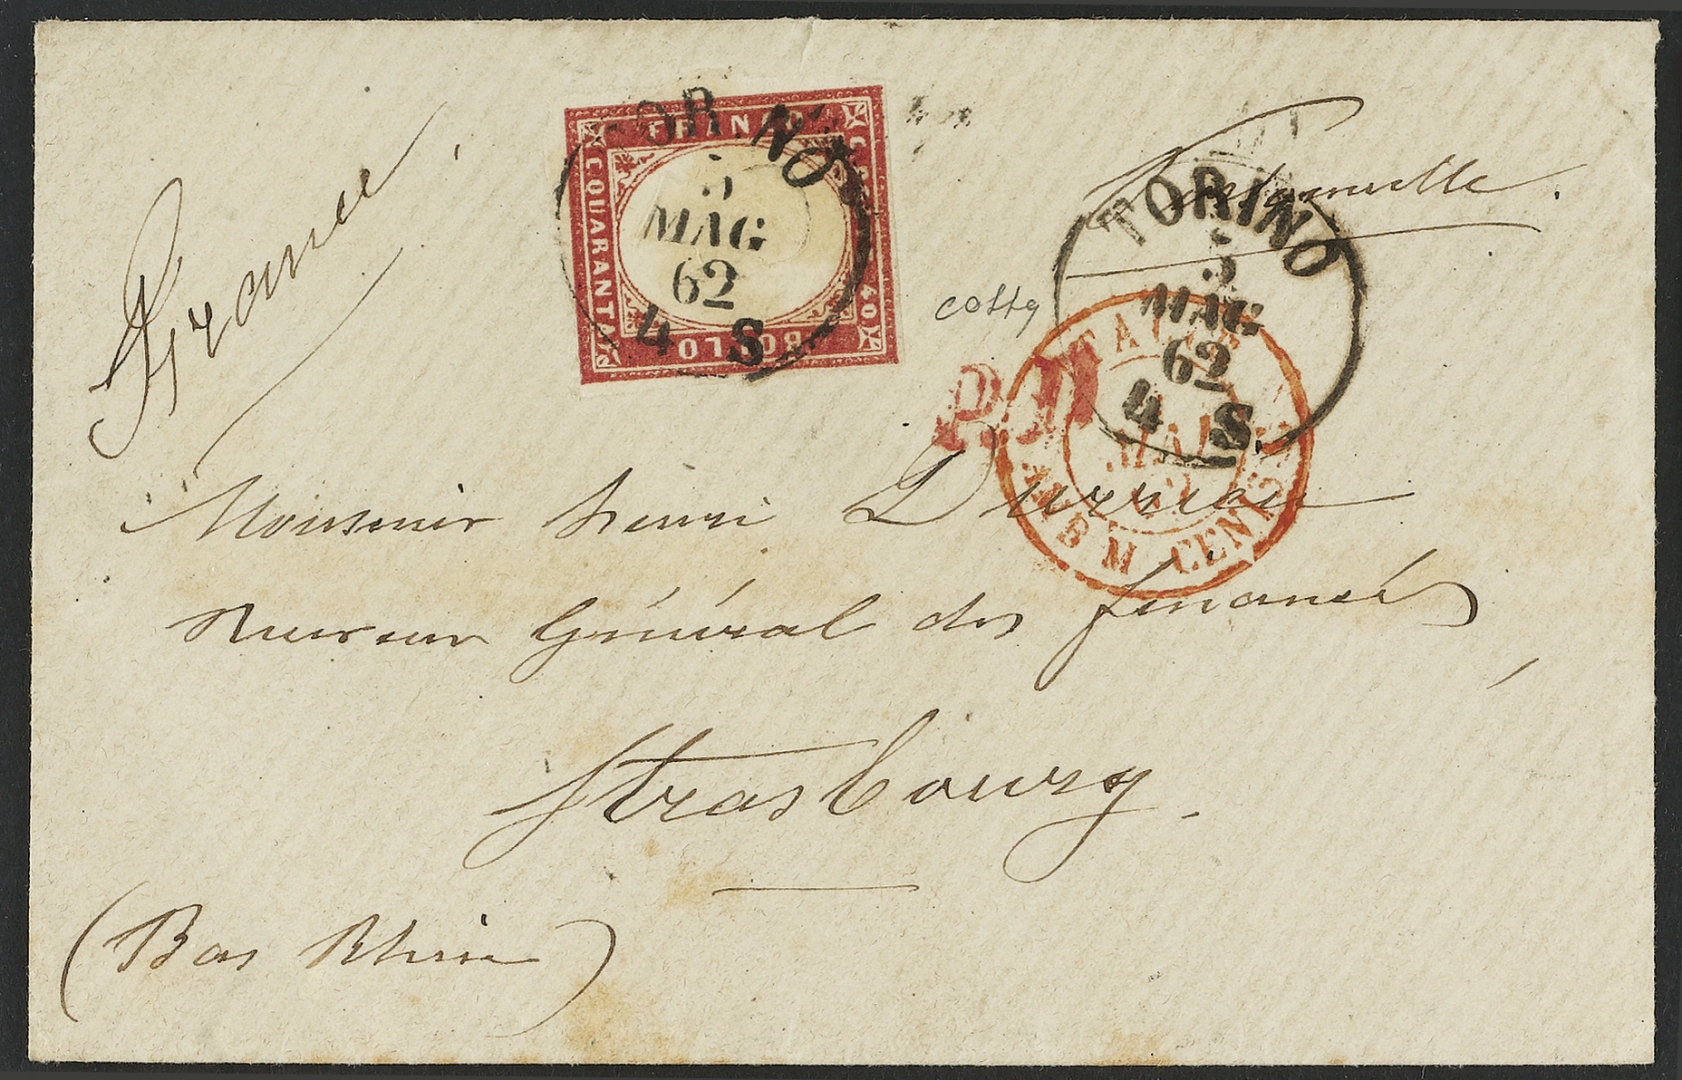 France
FRANCO
C. QUARANTA
C. 40
BOLLO
TORINO
5
MAG
62
4 S
TORINO
5
MAG
62
4 S.
P.D.
ITALIE
5 MAI
LAMB M. CENIS
Monsieur henri Durrieu
Receveur Général des finances,
Strasbourg.
(Bas Rhin)